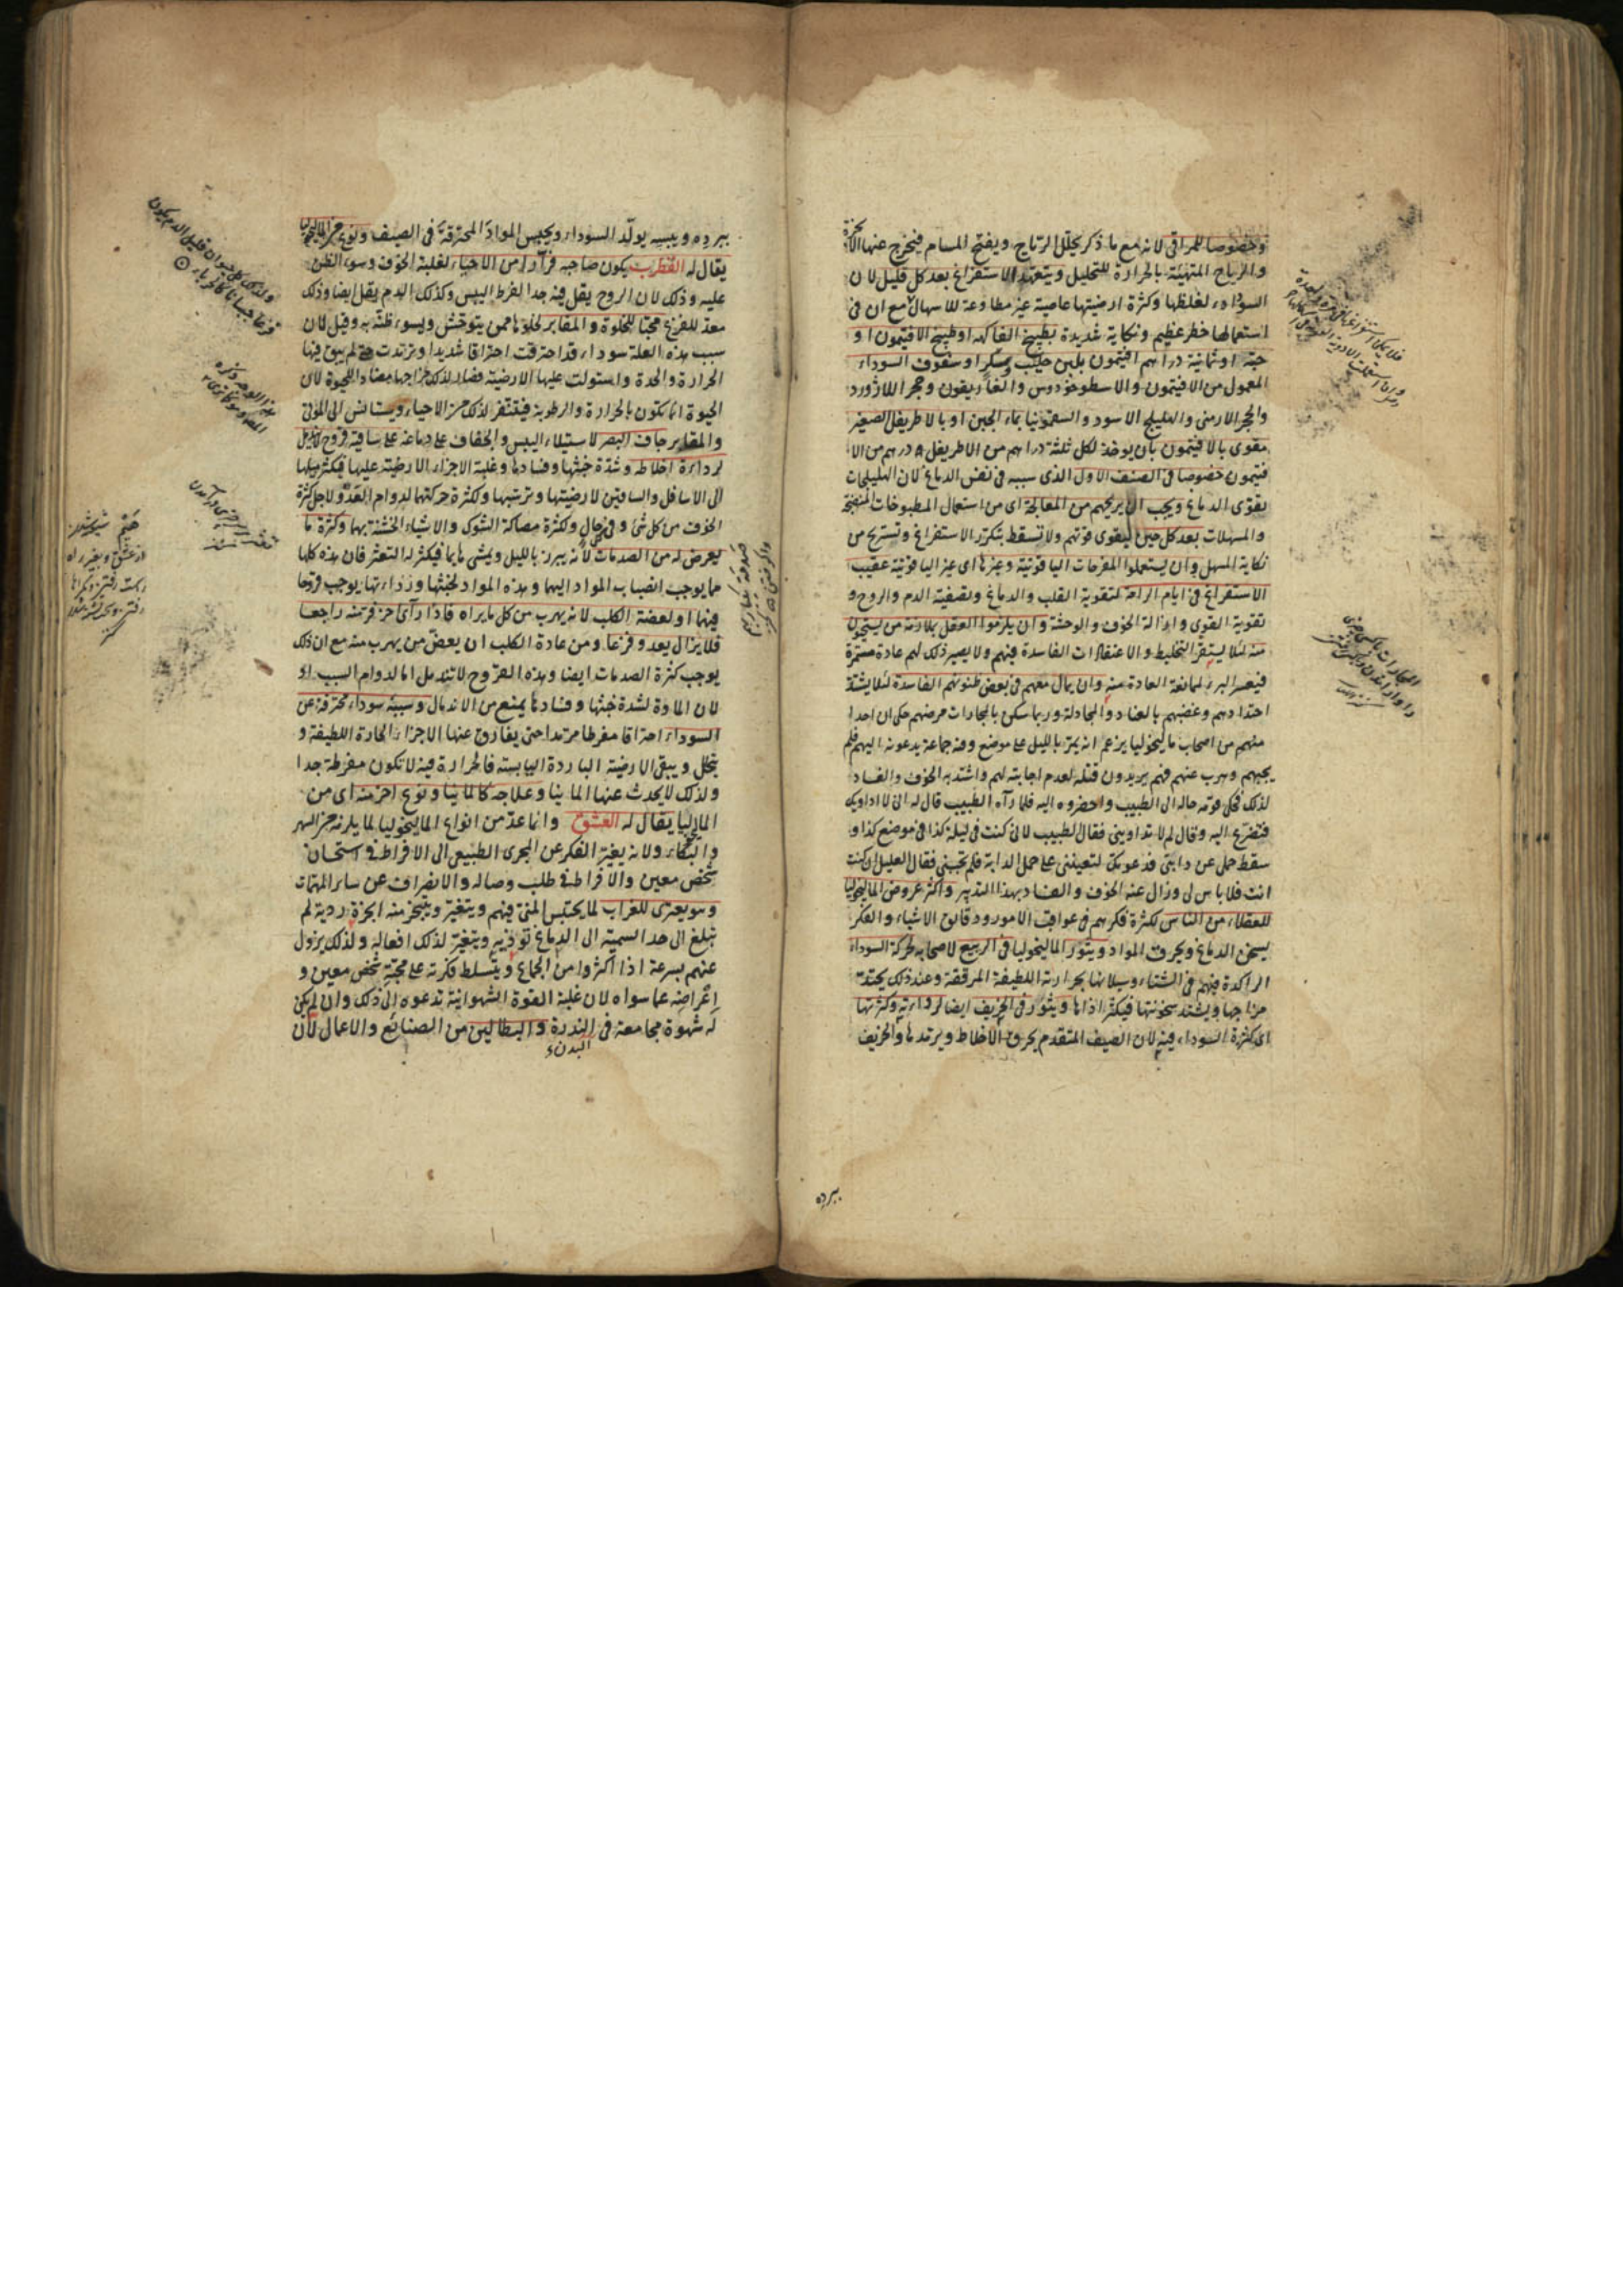 وخصوصا للمراقى لانه مع ما ذكر يحلل الرياح ويفتح المسام فيخرج عنها الابخرة
والرياح المتهيئة بالحرارة للتحليل ويتعهد الاستفراغ بعد كل قليل لان
السوداء لغلظها وكثرة ارضيتها عاصية غير مطاوعة للاسهال مع ان فى
استعمالها خطر عظيم ونكاية شديدة بطبيخ الفاكهه او طبيخ الافتيمون او
حبه او ثمانية دراهم افتيمون بلبن حليب وسكر او سفوف السوداء
المعمول من الافتيمون والاسطوخودوس والغاريقون وحجر اللازورد
والحجر الارمنى والهليلج الاسود والسقمونيا بماء الجبن او بالاطريفل الصغير
مقوى بالافتيمون بان يوخذ لكل ثلثة دراهم من الاطريفل درهم من الا
فتيمون خصوصا فى الصنف الاول الذى سببه فى نفس الدماغ لان الهليلجات
يقوى الدماغ ويجب ان يريحهم من المعالجة اى من استعمال المطبوخات المنضجة
والمسهلات بعد كل حين ليقوى قوتهم ولا تسقط بتكرر الاستفراغ وتستريح من
نكاية المسهل وان يستعملوا المفرحات الياقوتية وغيرها اى غير الياقوتية عقيب
الاستفراغ فى ايام الراحة لتقوية القلب والدماغ وتصفية الدم والروح و
تقوية القوى وازالة الخوف والوحشة وان يلزموا العقل بملازمة من يستحيون
منه لئلا يستقر التخليط والاعتقادات الفاسدة فيهم ولا يصير ذلك لهم عادة مستمرة
فيعسر البرء لممانعة العادة عنه وان يمال معهم فى بعض ظنونهم الفاسدة لئلا يشتد
احتدادهم وغضبهم بالعناد والمجادلة وربما سكن بالمجارات مرضهم حكى ان احدا
منهم من اصحاب ماليخوليا يزعم انه يمر بالليل على موضع وفيه جماعة يدعونه اليهم فلم
يجبهم وهرب عنهم فهم يريدون قتله لعدم اجابته لهم واشتد به الخوف والفساد
لذلك فحكى قومه حاله الى الطبيب واحضروه اليه فلما رآه الطبيب قال له انى لا اداويك
فتضرع اليه وقال لم لا تداوينى فقال الطبيب لانى كنت فى ليلة كذا فى موضع كذا و
سقط حملى عن دابتى فدعوتك لتعيننى على حمل الدابة فلم تجبنى فقال العليل ان كنت
انت فلا باس لى وزال عنه الخوف والفساد بهذا التدبير واكثر عروض الماليخوليا
للعقلاء من الناس لكثرة فكرهم فى عواقب الامور ودقائق الاشياء والفكر
يسخن الدماغ ويحرق المواد ويثور الماليخوليا فى الربيع لاصحابه لحركة السوداء
الراكدة فيهم فى الشتاء وسيلانها بحرارته اللطيفة المرققة وعند ذلك يحتد
مزاجها ويشتد سخونتها فيكثر اذاها ويثور فى الخريف ايضا لرداءته وكثرتها
اى كثرة السوداء فيه لان الصيف المتقدم يحرق الاخلاط ويرمدها والخريف
ببرده
ببرده ويبسه يولد السوداء ويحبس المواد المحترقة فى الصيف ونوع من الماليخوليا
يقال له القطرب يكون صاحبه فرارا من الاحياء لغلبة الخوف وسوء الظن
عليه وذلك لان الروح يقل فيه جدا لفرط اليبس وكذلك الدم يقل ايضا وذلك
معد للفزع محبا للخلوة والمقابر لخلوها عمن يتوحش ويسوء ظنه به وقيل لان
سبب هذه العلة سوداء قد احترقت احتراقا شديدا وترمدت حتى لم يبق فيها
الحرارة والحدة واستولت عليها الارضية فصار لذلك مزاجها مضادا للحيوة لان
الحيوة انما تكون بالحرارة والرطوبة فيتنفر لذلك من الاحياء ويستانس الى الموتى
والمقابر جاف البصر لاستيلاء اليبس والجفاف على دماغه على ساقيه قروح لا تندمل
لرداءة اخلاطه وشدة خبثها وفسادها وغلبة الاجزاء الارضية عليها فيكثر ميلها
الى الاسافل والساقين لارضيتها وترسبها ولكثرة حركتهما لدوام العدو لاجل كثرة
الخوف من كل شئ وفى كل حال ولكثرة مصاكة الشوك والاشياء الخشنة بهما وكثرة ما
يعرض له من الصدمات لانه يبرز بالليل ويمشى هايما فيكثر له التعثر فان هذه كلها
مما يوجب انصباب المواد اليهما وهذه المواد لخبثها ورداءتها يوجب قروحا
فيهما او لعضة الكلب لانه يهرب من كل ما يراه فاذا رآى آخر فر منه راجعا
فلا يزال يعدو فزعا ومن عادة الكلب ان يعض من يهرب منه مع ان ذلك
يوجب كثرة الصدمات ايضا وهذه القروح لا تندمل اما لدوام السبب او
لان المادة لشدة خبثها وفسادها يمنع من الاندمال وسببه سوداء محترقة عن
السوداء احتراقا مفرطا مرمدا حتى يفارق عنها الاجزاء الحارة اللطيفة و
يتحلل ويبقى الارضية الباردة اليابسة فالحرارة فيه لا تكون مفرطة جدا
ولذلك لا يحدث عنها المانيا وعلاجه كالمانيا ونوع اخر منه اى من
الماليخوليا يقال له العشق وانما عد من انواع الماليخوليا لما يلزمه من السهر
والبكاء ولانه يغير الفكر عن المجرى الطبيعى الى الافراط فى استحسان
شخص معين والافراط فى طلب وصاله والانصراف عن ساير المهمات
وهو يعترى للعزاب لما يحتبس المنى فيهم ويتغير ويتبخر منه ابخرة ردية لم
تبلغ الى حد السمية الى الدماغ تؤذيه ويتغير لذلك افعاله ولذلك يزول
عنهم بسرعة اذا اكثروا من الجماع ويتسلط فكرته على محبة شخص معين و
اعراضه عما سواه لان غلبة القوة الشهوانية تدعوه الى ذلك وان لم يكن
له شهوة مجامعة فى الندرة والبطالين من الصنائع والاعمال لان
البدن